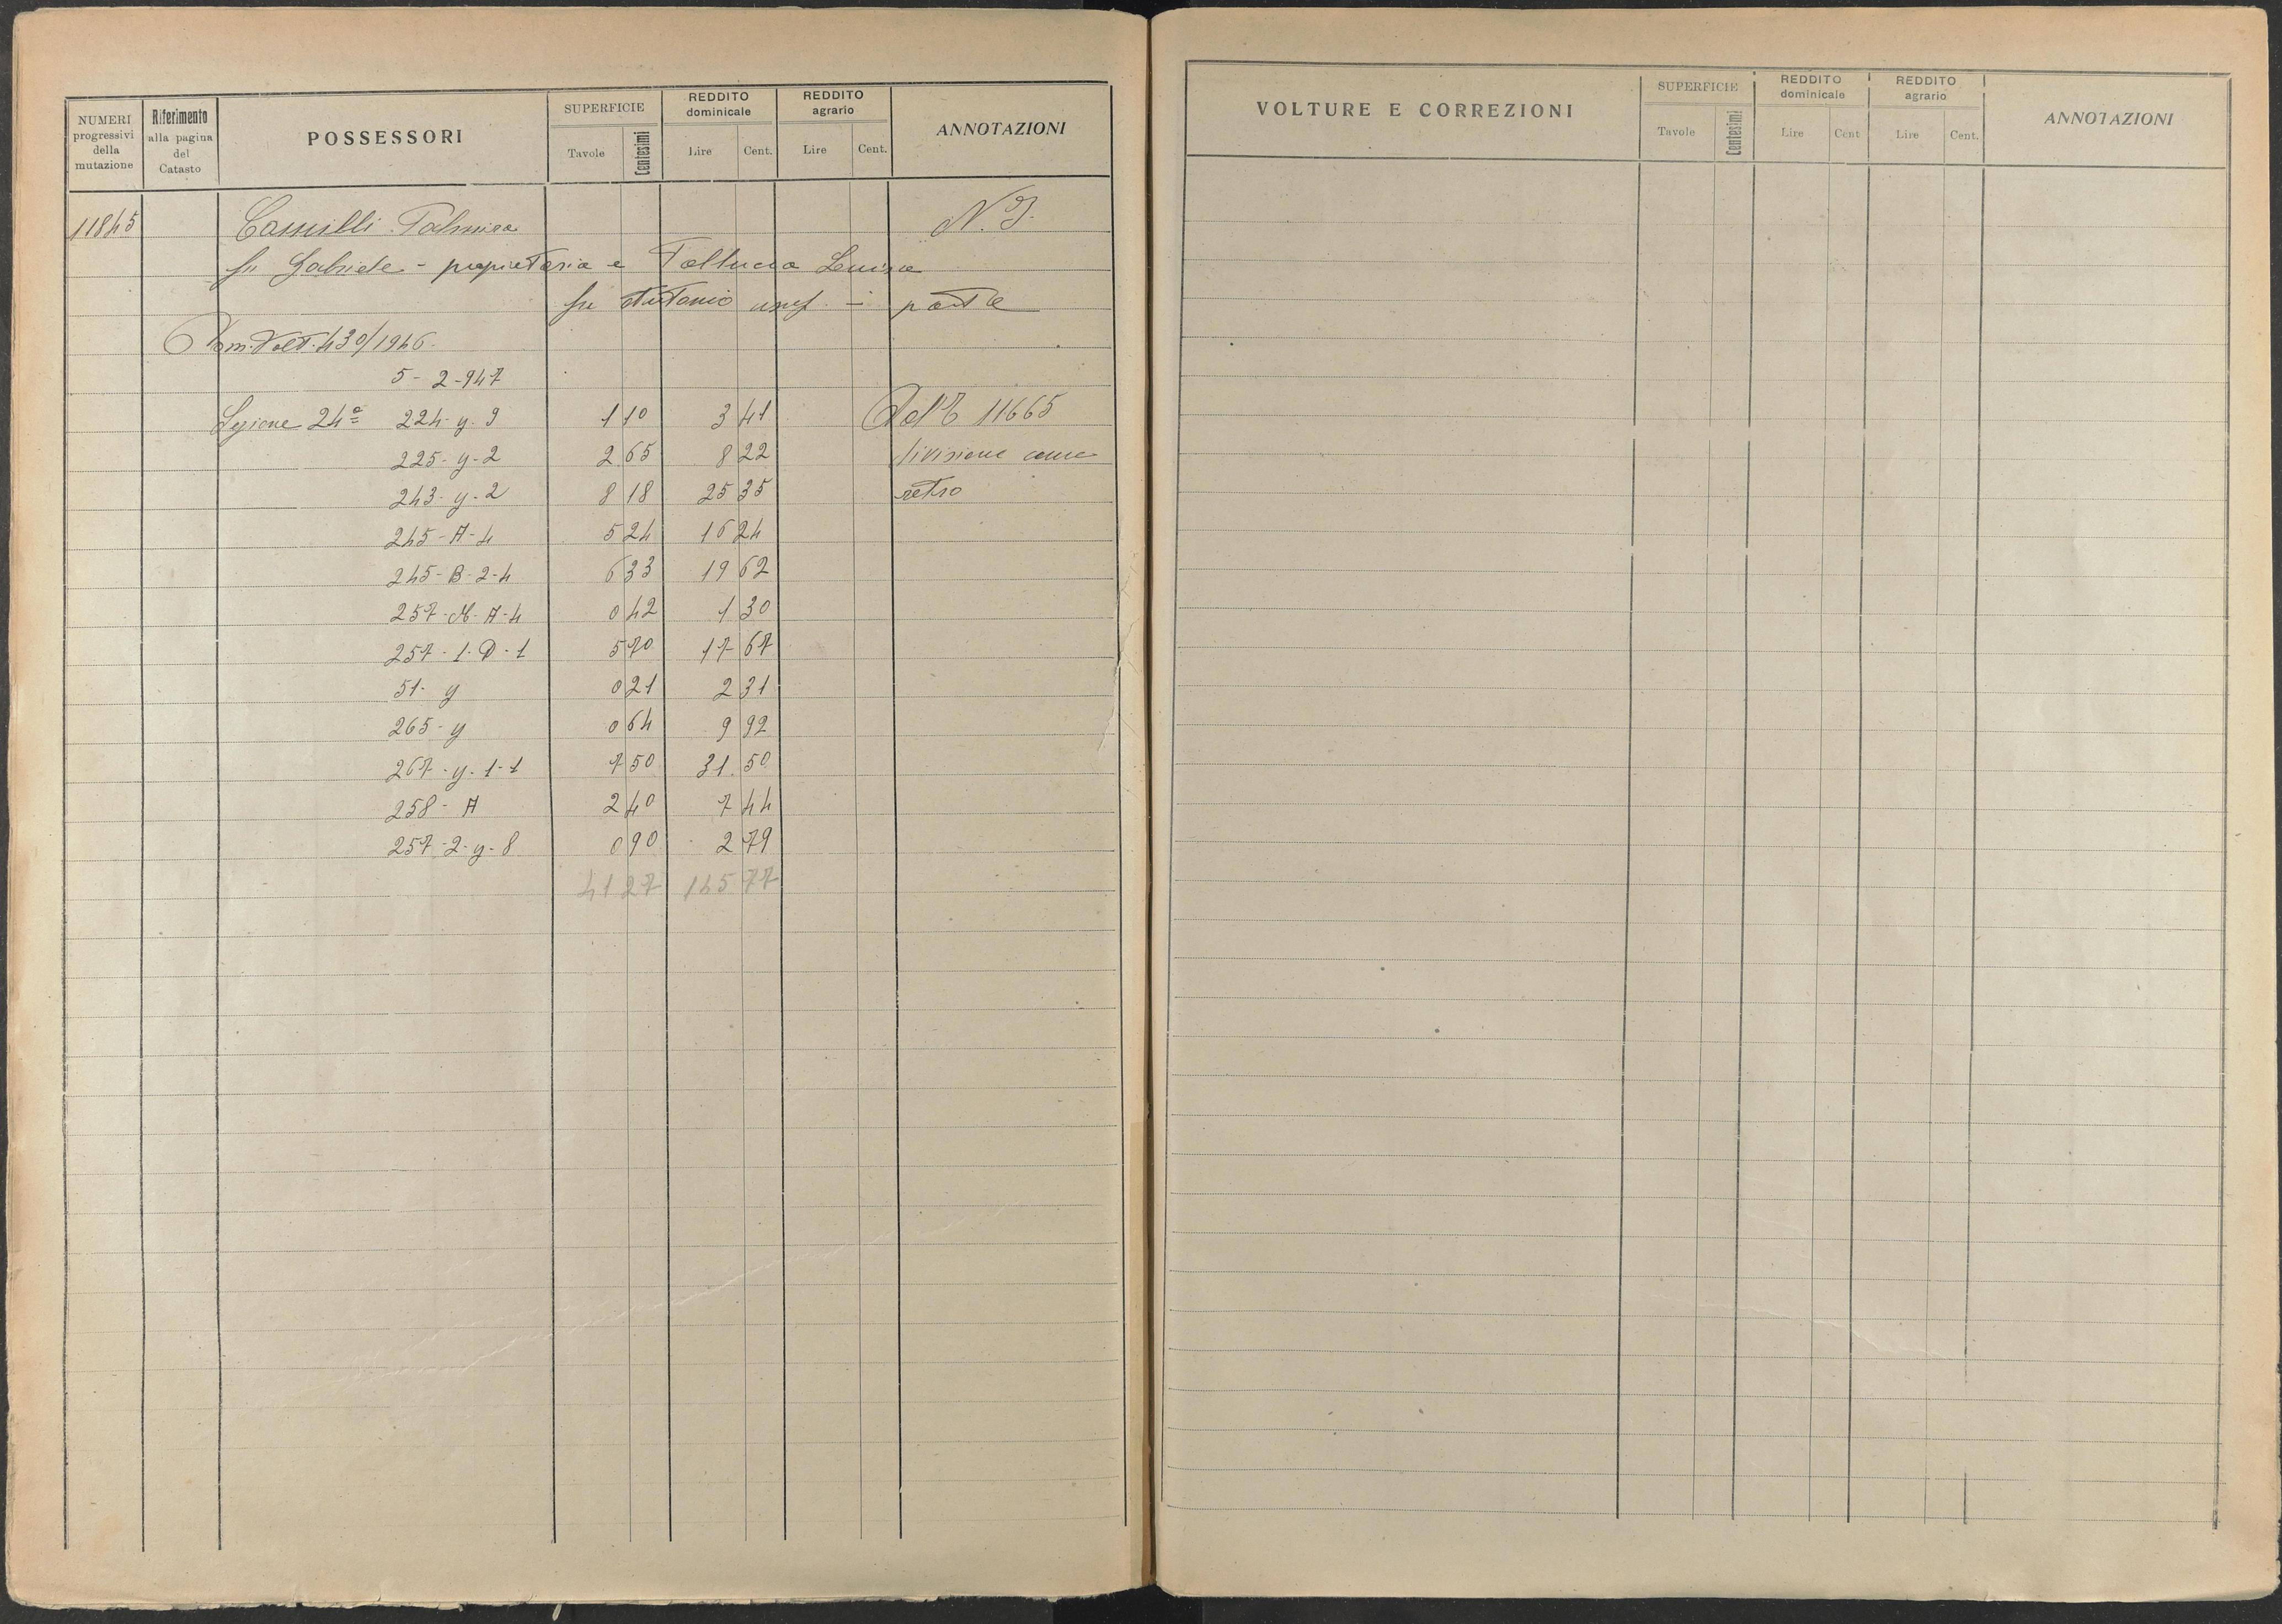 NUMERI progressivi della mutazione
Riferimento alla pagina del Catasto
POSSESSORI
SUPERFICIE
Tavole Centesimi
REDDITO dominicale
Lire Cent.
REDDITO agrario
Lire Cent.
ANNOTAZIONI
11845 Camilli Palmira N. 3.
fu Gabriele - proprietaria e Luisa
fu Antonio usuf. - parte
Dom. Volt. 430/1946.
5 - 2 - 947
Sezione 24ª 224 - y. 9 1 10 3 41 Dall'E 11665
225 - y - 2 2 65 8 22 divisione come
243 - y - 2 8 18 25 35 retro
245 - A - 4 5 24 16 24
245 - B - 2 - 4 6 33 19 62
257 - M - A - 4 0 42 1 30
257 - 1 - D - 1 5 70 17 67
51 - y 0 21 2 31
265 - y 0 64 9 92
267 - y - 1 - 1 7 50 31. 50
258 - A 2 40 7 44
257 - 2 - y - 8 0 90 2 79
41 27 145 77
VOLTURE E CORREZIONI
SUPERFICIE
Tavole Centesimi
REDDITO dominicale
Lire Cent
REDDITO agrario
Lire Cent.
ANNOTAZIONI